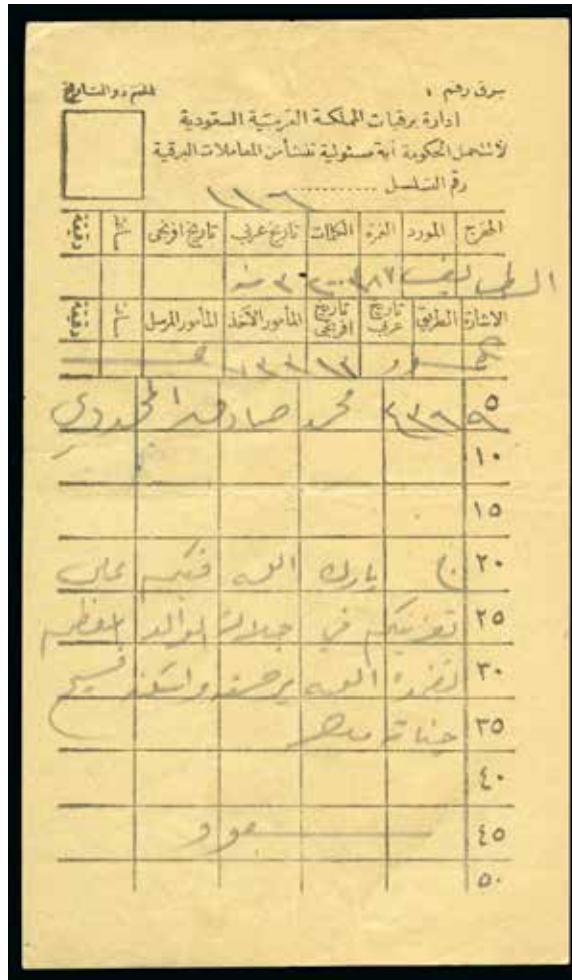 برق رقم ١
الختم ذو التاريخ
ادارة برقيات المملكة العربية السعودية
لا تتحمل الحكومة أية مسئولية تنشأ من المعاملات البرقية
رقم التسلسل .......... ١١٦
المخرج المورد الكلمات تاريخ عربي تاريخ افرنجي ساعة دقيقة
الطايف
الاشارة الطريق تاريخ عربي تاريخ افرنجي المأمور الآخذ المأمور المرسل ساعة دقيقة
٥ محمد صادق المجددي
١٠
١٥
٢٠ ج بارك الله فيكم على
٢٥ تعزيتكم في جلالة الوالد المعظم
٣٠ تغمده الله برحمته واسكنه فسيح
٣٥ جناته
٤٠
٤٥ سعود
٥٠